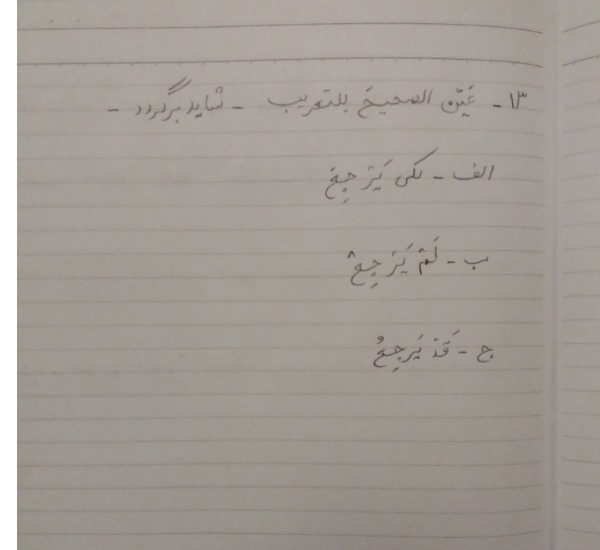 ۱۳- عَیِّن الصحیحَ للتعریب - شاید برگردد -
الف - لکی یَرْجِعَ
ب - لَمْ یَرْجِعْ
ج - قَدْ یَرجِعُ